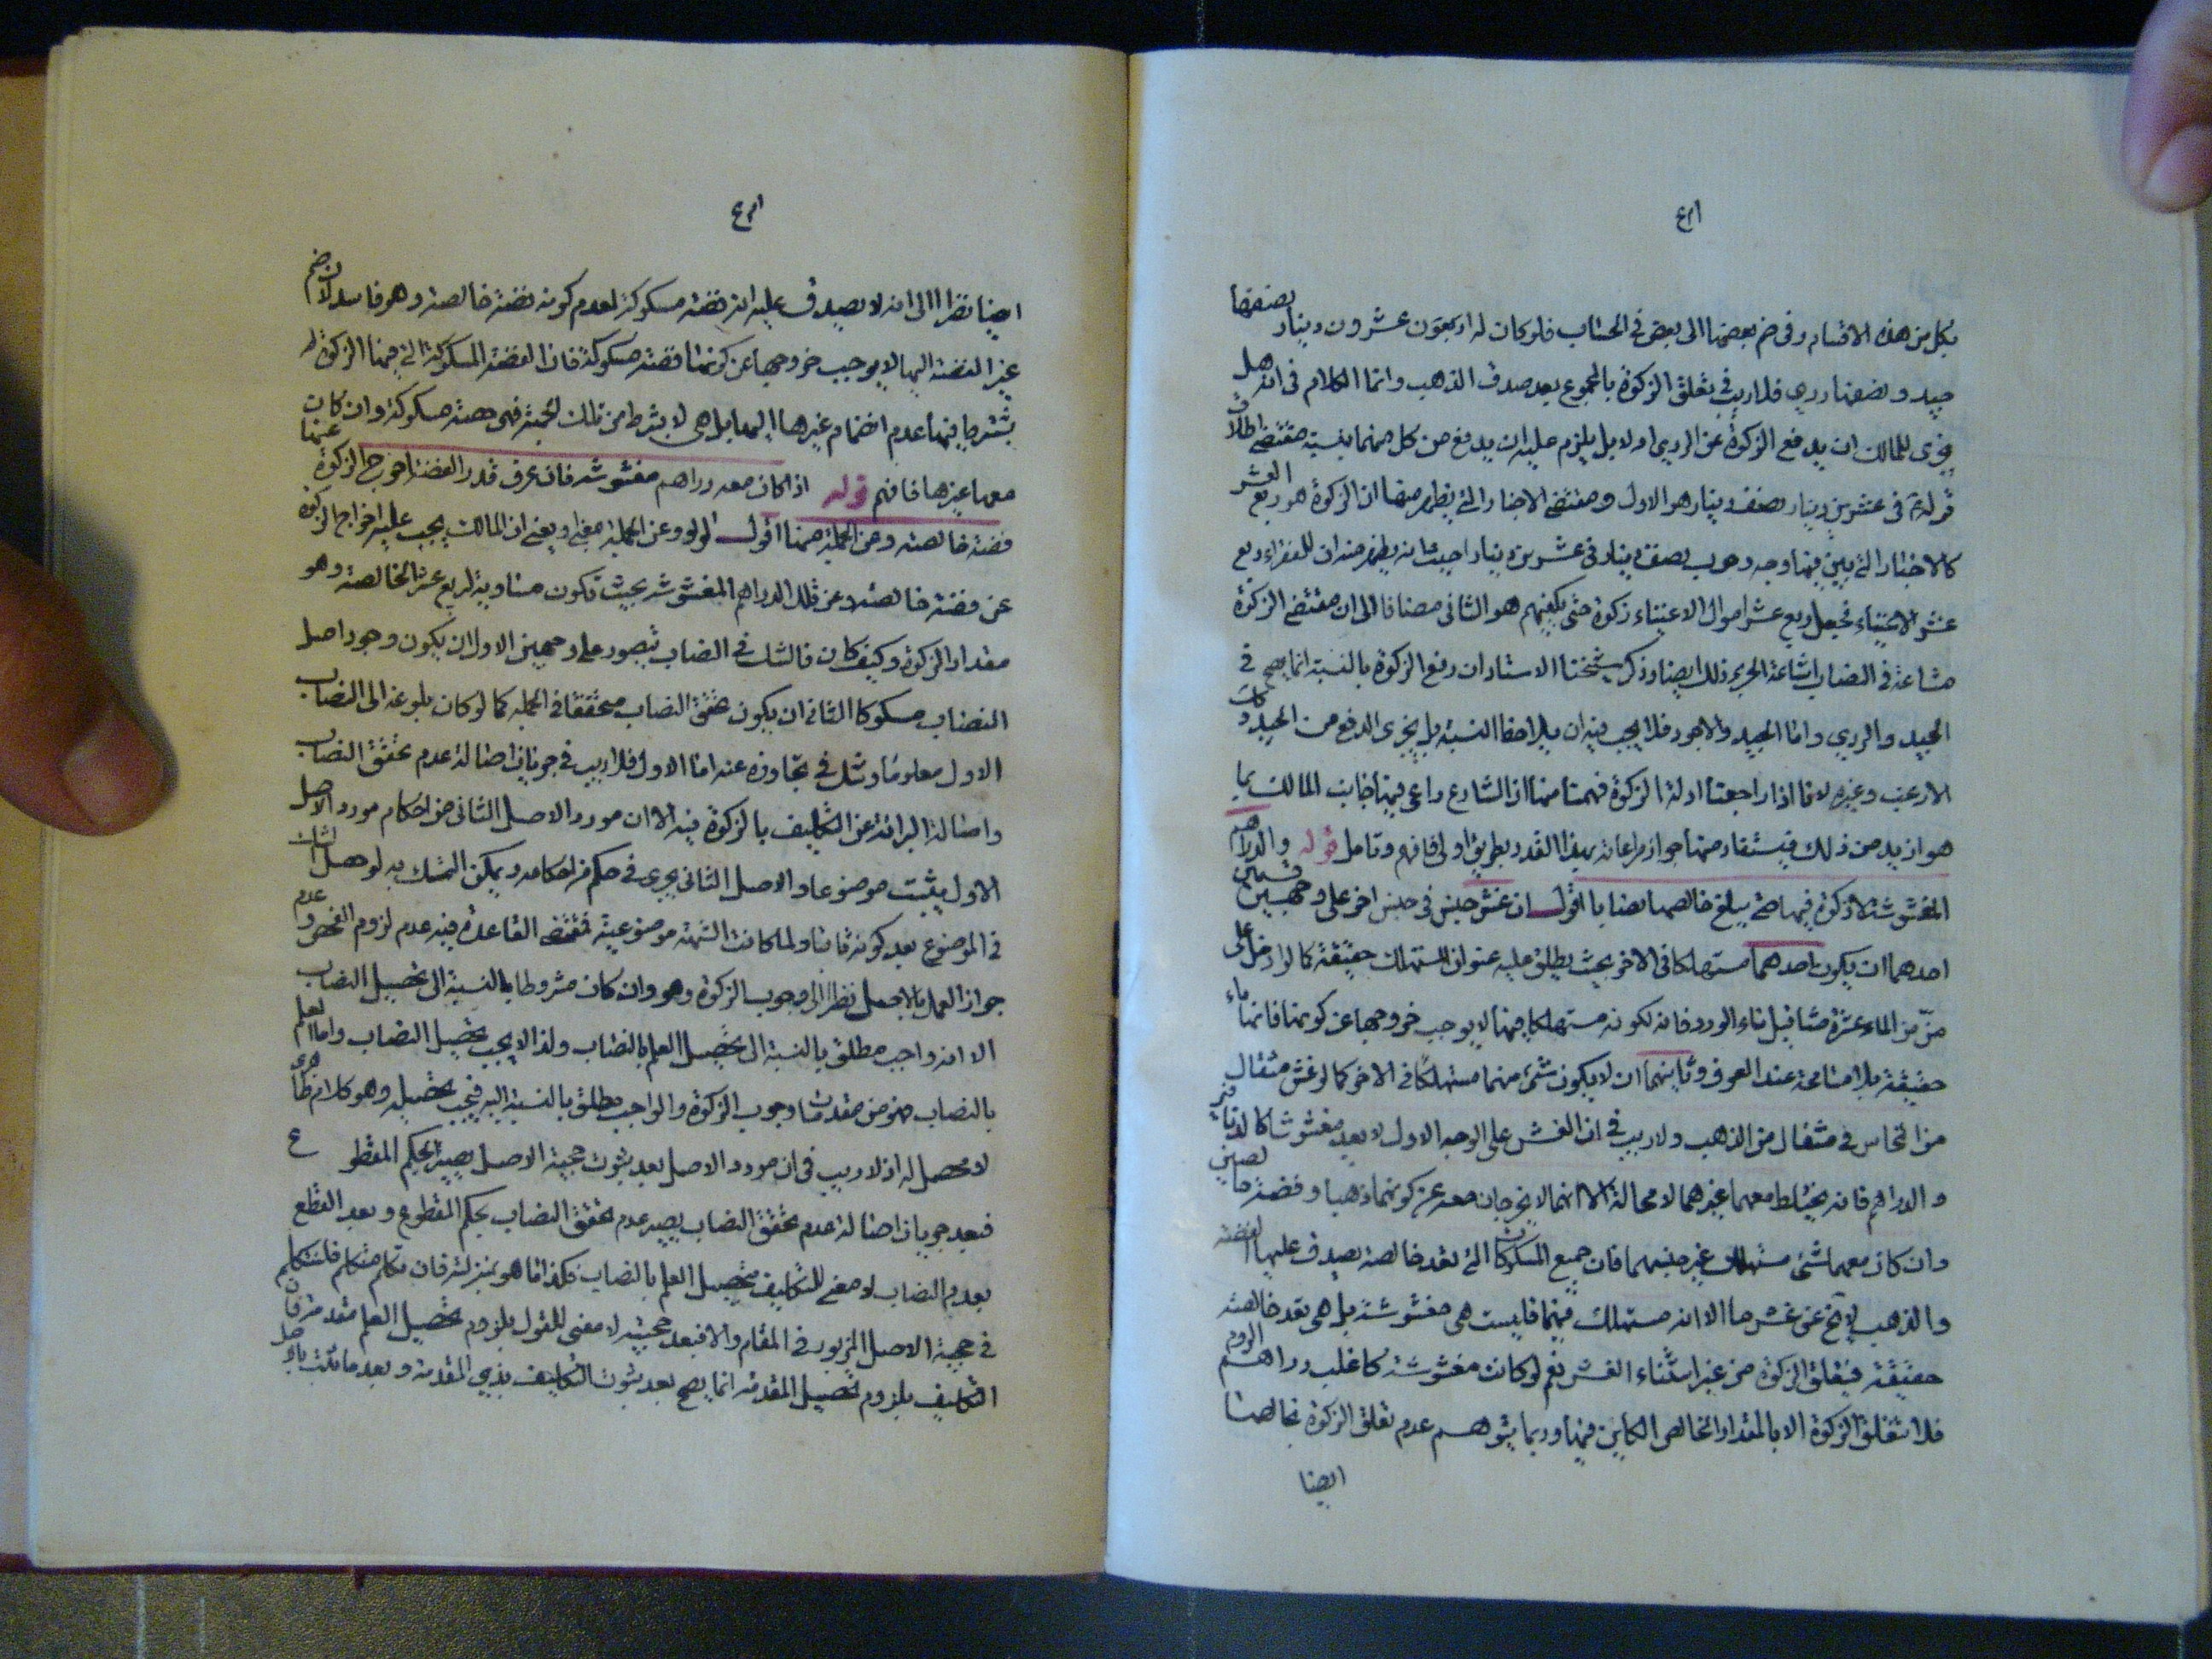 بكل من هذه الاقسام وفى ضم بعضها الى بعض فى الحساب فلو كان له اربعون عشرون دينار نصفها
جيد ونصفها ردي فلا ريب فى تعلق الزكوة بالمجموع بعد صدق الذهب وانما الكلام فى انه هل
يجزى للمالك ان يدفع الزكوة عن الردي اولا بل يلزم عليه ان يدفع من كل منهما بنسبته مقتضى اطلاق
قوله فى عشرين دينار نصف دينار هو الاول ومقتضى الاخبار التى يظهر منها ان الزكوة هو ربع العشر
كالاخبار التى بين فيها وجه وجوب نصف دينار فى عشرين دينارا حيث انه يظهر منه ان للفقراء ربع
عشر الاغنياء فجعل ربع عشر اموال الاغنياء زكوة حتى يكفيهم هو الثانى مضافا الى ان مقتضى الزكوة
مشاعة فى النصاب اشاعة الجزء ذلك ايضا وذكر شيخنا الاستاد ان دفع الزكوة بالنسبة انما يصح فى
الجيد والردي واما الجيد والاجود فلا يجب فيه ان يلاحظ النسبة بل يجزى الدفع من الجيد وكان
الارغب وغيره لانا اذا راجعنا ادلة الزكوة فهمنا منها ان الشارع راعى فيها جانب المالك بما
هو ازيد من ذلك فيستفاد منها جواز مراعاته بهذا القدر بطريق اولى فافهم وتامل قوله والدراهم
المغشوشة لا زكوة فيها حتى يبلغ خالصها نصابا اقول ان غش جنس فى جنس اخر على وجهين قسمين
احدهما ان يكون احدهما مستهلكا فى الاخر بحيث يطلق عليه عنوان المستهلك حقيقة كما لو ادخل على
من من الماء عشرة مثاقيل ماء الورد فانه لكونه مستهلكا فيها لا يوجب خروجها عن كونها فانها ماء
حقيقة بلا مسامحة عند العرف وثانيهما ان لا يكون شئ منهما مستهلكا فى الاخر كما لو غش مثقال
من النحاس فى مثقال من الذهب ولا ريب فى ان الغش على الوجه الاول لا يعد مغشوشا كالدنانير
والدراهم فانه يختلط معهما غيرهما لا محالة الا انهما لا يخرجان معه عن كونهما ذهبا وفضة خالصين
وان كان معهما شئ مستهلك غير جنسهما فان جميع المسكوكات التى تعد خالصة يصدق عليها الفضة
والذهب لا يخ عن غش ما الا انه مستهلك فيها فليست هى مغشوشة بل هى تعد خالصة
حقيقة فيتعلق الزكوة من غير استثناء الغش نعم لو كانت مغشوشة كاغلب دراهم الروم
فلا تتعلق الزكوة الا بالمقدار الخالص الكاين فيها وربما يتوهم عدم تعلق الزكوة بخالصها
ايضا
ايضا نظرا الى انه لا يصدق عليه انه فضة مسكوكة لعدم كونه فضة خالصة وهو فاسد لان ضم
غير الفضة اليها لا يوجب خروجها عن كونها فضة مسكوكة فان الفضة المسكوكة التى فيها الزكوة لم
يشترط فيها عدم انضمام غيرها اليها بل هى لا بشرط من تلك الحيثية فهى فضة مسكوكة وان كان
معها غيرها فافهم قوله اذا كان معه دراهم مغشوشة فان عرف قدر الفضة اخرج الزكوة عنها
فضة خالصة وعن الجملة منها اقول الواو وعن الجملة بمعنى او يعنى ان المالك يجب عليه اخراج الزكوة
عن فضة خالصة لا عن تلك الدراهم المغشوشة بحيث تكون مساوية لربع عشر الخالصة وهو
مقدار الزكوة وكيف كان فالشك فى النصاب يتصور على وجهين الاول ان يكون وجود اصل
النصاب مشكوكا الثانى ان يكون تحقق النصاب متحققا فى الجملة كما لو كان بلوغه الى النصاب
الاول معلوما وشك فى تجاوزه عنه اما الاول فلا ريب فى جريان اصالة عدم تحقق النصاب
واصالة البرائة عن التكليف بالزكوة فيه الا ان مورد الاصل الثانى من احكام مورد الاصل
الاول يثبت موضوعا والاصل الثانى يجرى فى حكم من احكامه ويمكن التمسك به لو حصل الشك
فى الموضوع بعد كونه فانيا ولما كانت الشبهة موضوعية فمقتضى القاعدة فيه عدم لزوم الفحص وعدم
جواز العمل بالاصل نظرا الى وجوب الزكوة وهو وان كان مشروطا بالنسبة الى تحصيل النصاب
الا انه واجب مطلق بالنسبة الى تحصيل العلم بالنصاب ولذا لا يجب تحصيل النصاب واما العلم
بالنصاب فهو من مقدمات وجوب الزكوة والواجب مطلق بالنسبة اليه فيجب تحصيله وهو كلام ظاهرى
لا محصل له اذ لا ريب فى ان مورد الاصل بعد ثبوت حجية الاصل يصير بحكم المقطوع
فبعد جريان اصالة عدم تحقق النصاب يصير عدم تحقق النصاب بحكم المقطوع وبعد القطع
بعدم النصاب لا معنى للتكليف بتحصيل العلم بالنصاب فكذا ما هو بمنزلته فان تكلم متكلم فليتكلم
فى حجية الاصل المزبور فى المقام والا فبعد حجيته لا معنى للقول بلزوم تحصيل العلم مقدمة فان
التكليف بلزوم تحصيل المقدمة انما يصح بعد ثبوت التكليف بذى المقدمة وبعد ما ثبت بالاصل